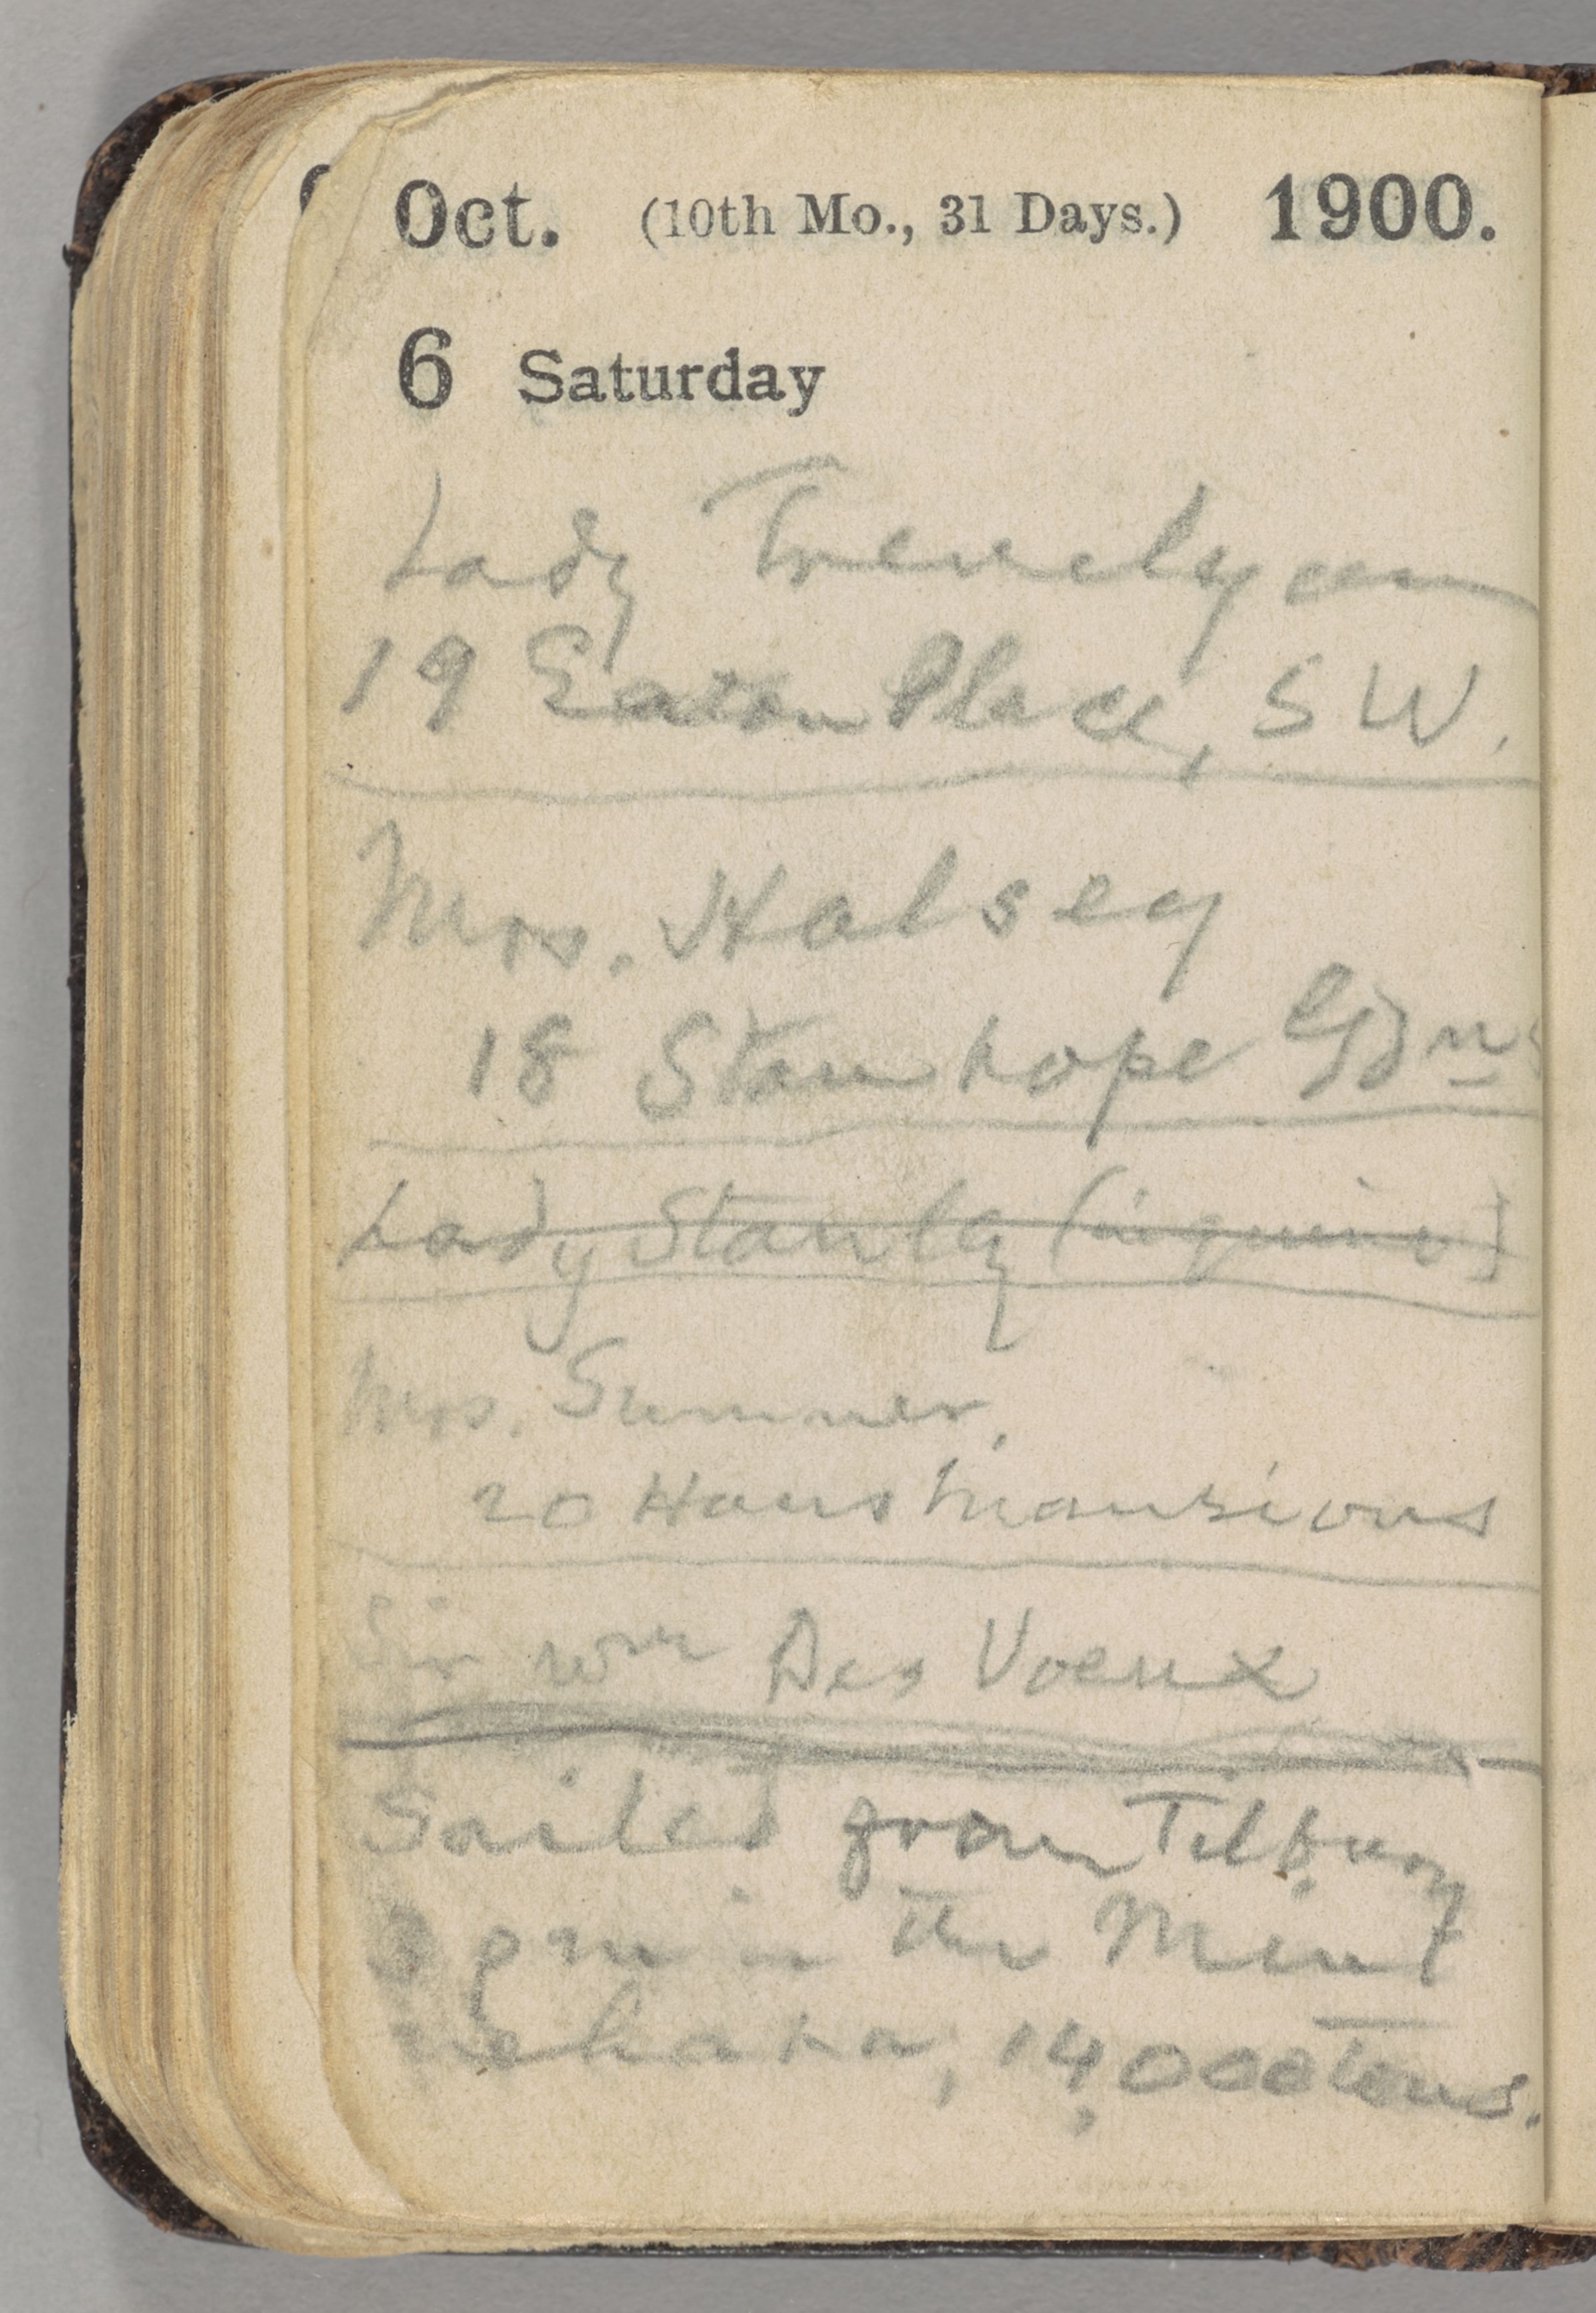 Oct. (10th Mo., 31 Days.) 1900.
6 Saturday
Lady Trevelyan
19 Eaton Place, SW.
Mrs. Halsey
18 Stanhope Gdns
Lady Stanley (inquire)
Mrs. Sumner,
20 Hans Mansions
Sir Wm Des Voeux
Sailed from Tilbury
3 pm in the Minne
nehaha, 14,000 tons.